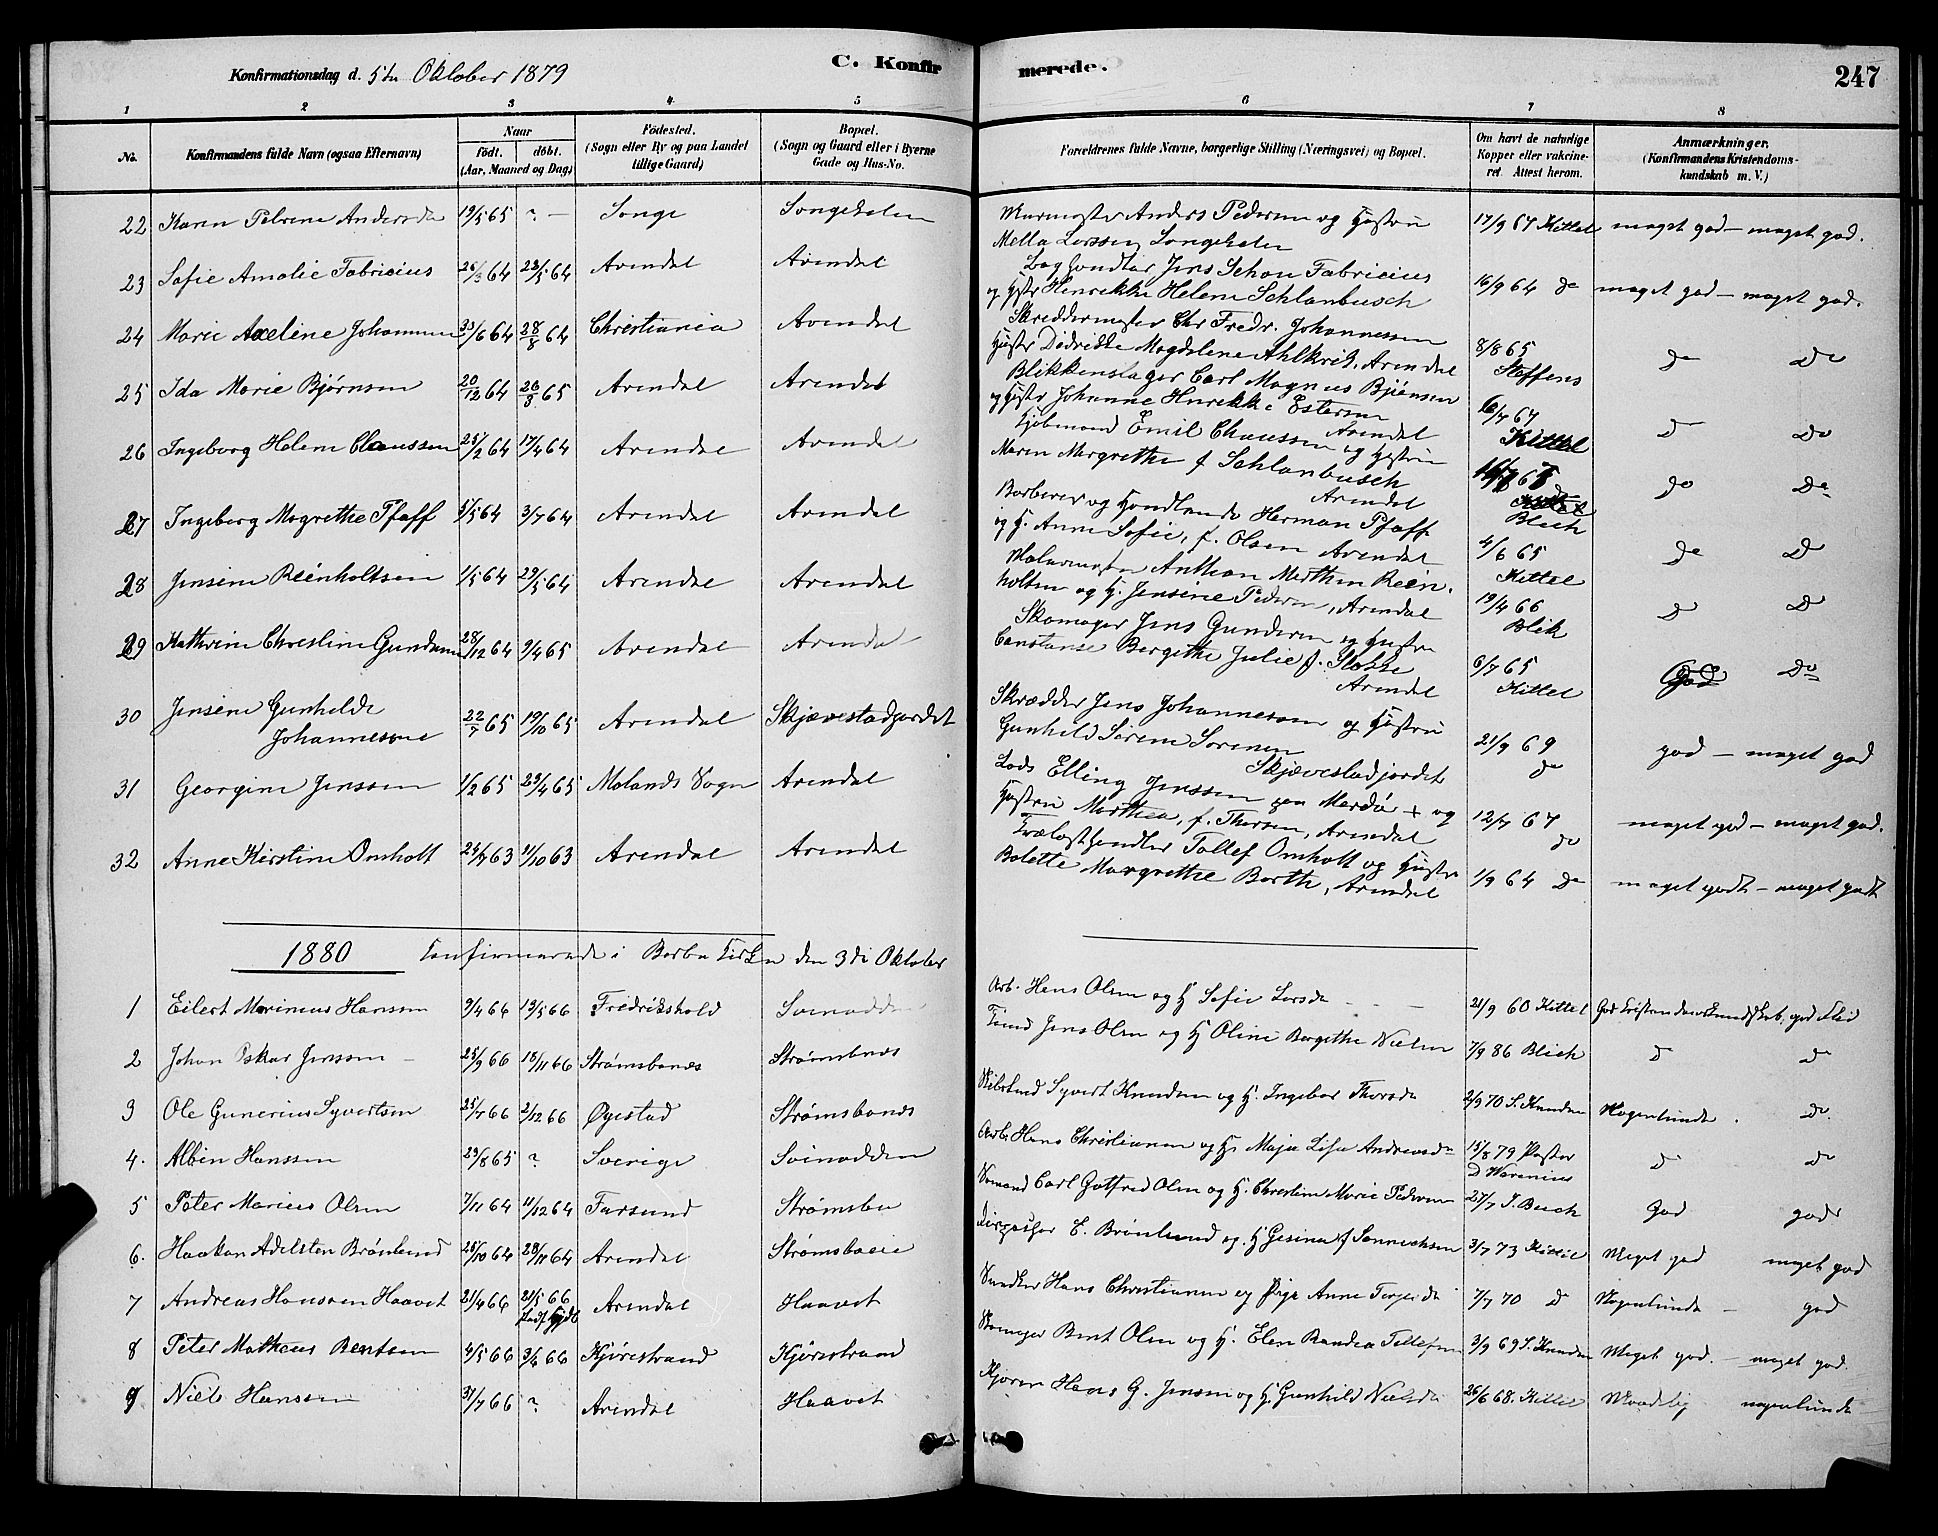 Konfirmationsdag d. 5te Oktober 1879
C. Konfirmerede.
247
1 2 3 4 5 6 7 8
No. Konfirmandens fulde Navn (ogsaa Efternavn) Naar født. døbt. (Aar, Maaned og Dag) Fødested. (Sogn eller By og paa Landet tillige Gaard) Bopæl. (Sogn og Gaard eller i Byerne Gade og Hus-No. Forældrenes fulde Navne, borgerlige Stilling (Næringsvei) og Bopæl. Om havt de naturlige Kopper eller vakcineret Attest herom. Anmærkninger. (Konfirmandens Kristendomskundskab m. V.)
22 Karen Petrine Andersda 19/5 65 ? — Songe Songekalen Murmester Anders Pedersen og Hustru
Mella Larssen Songekalen 17/9 67 Kittel meget god — meget god.
23 Sofie Amalie Fabricius 26/3 64 28/5 64 Arendal Arendal Jens Schou Fabricius
og Hstr Henrikke Helene Schlanbusch 16/9 64 do meget god — meget god.
24 Marie Axeline Johannesen 6 64 28/8 64 Christiania Arendal Skreddermester Chr Fredr. Johannessen
Hustr Didrikke Magdalene Ahlkvist, Arendal 8/8 65 Steffens do do
25 Ida Marie Bjørnsen 20/12 64 26/8 65 Arendal Arendal Blikkenslager Carl Magnus Bjørnsen
og Hustr Johanne Henrikke Estersen Arendal 6/7 67 Kittel d do
26 Ingeborg Helene Claussen 25/2 64 17/4 64 Arendal Arendal Kjøbmand Emil Claussen og Hustru
Maren Margrethe f Schlanbusch Arendal Blich do do
27 Ingeborg Magrethe Pfaff 5/5 64 3/7 64 Arendal Arendal Barberer og Handlende Herman Pfaff
og H. Anne Sofie, f. Olsen Arendal 4/6 65 Kittel do d
28 Jensine Reinholtsen 1/5 64 29/5 64 Arendal Arendal Malermester Anthon Marthin Reinholtsen
og H. Jensine Pedersen, Arendal 19/4 66 Blik d d
29 Kathrine Christine Gundersen 28/12 64 9/4 65 Arendal Arendal Skomager Jens Gundersen og Hustru
Constanse Bergithe Julie f. Arendal 6/7 65 Kittel God do
30 Jensine Gunhilde
Johannesene 22/7 65 19/10 65 Arendal Skjævestadjordet Skrædder Jens Johannesen og Hustru
Gunhild Serine Sørensen Skjævestadjordet 21/9 69 do god — meget god
31 Georgine Jenssen 1/2 65 23/4 65 Molands Sogn Arendal Lods Elling Jenssen Merdø + og
Hustru Marthea, f. Thorsen, Arendal 12/7 67 do meget god — meget god.
32 Anne Kirstine Omholt 24/7 63 11/10 63 Arendal Arendal Trælasthandler Tallef Omholt og Hustru
Bolette Margrethe Barth, Arendal 1/9 64 do meget godt — meget godt
1880 Konfirmerede i Barbu Kirken den 3di Oktober
1 Eilert Marinius Hansen 9/4 66 13/5 66 Fredrikshald Svinodden Arb. Hans Olsen og H Sofie Larsda 21/9 60 Kittel God Kristendomskundskab, god Flid
2 Johan Oskar Jenssen 25/9 66 18/11 66 Strømsbonæs Strømsbnæs Jens Olsen og H Oline Bergithe Nielsen 7/9 86 Blich d do
3 Ole Gunerius Syvertsen 25/7 66 2/12 66 Øyestad Strømsbonæs Syvert Knudsen og H. Ingebor Thorsda 2/9 70 S. Knudsen Nogenlunde . do.
4. Albin Hanssen 29/8 65 ? Sverige Svinodden Arb. Hans Christiansen og H. Maja Lisa Andreasda 15/8 79 Pastor D Warenius d do
5 Peter Marius Olsen 7/11 64 11/12 64 Farsund Strømsbu Sømand Carl Gotfred Olsen og H. Christine Marie Pedersen 27/7 J. Buch God god
6. Haakon Adelsten Brønlund 25/10 64 28/11 64 Arendal Strømsboeie E. Brønlund og H Gesina f Sannechsen 3/7 73 Kittel Meget god meget god
7 Andreas Hanssen Haavet 21/4 66 21/5 66 Arendal Haavet Hans Christiansen og Pige Anne Terjeda 7/7 70 d Nogenlunde — god
8 Peter Matheus Bentsen 4/5 66 3/6 66 Kjørestrand Kjørestrand Skomager Bent Olsen og H. Elen Tellefsen 3/9 69 S. Knudsen Meget god. — meget god.
9 Niels Hanssen 31/7 66 ? Arendal Haavet Hans G. Jensen og H. Gunhild Nielsda 26/6 68. Kittel Maadelig nogenlunde